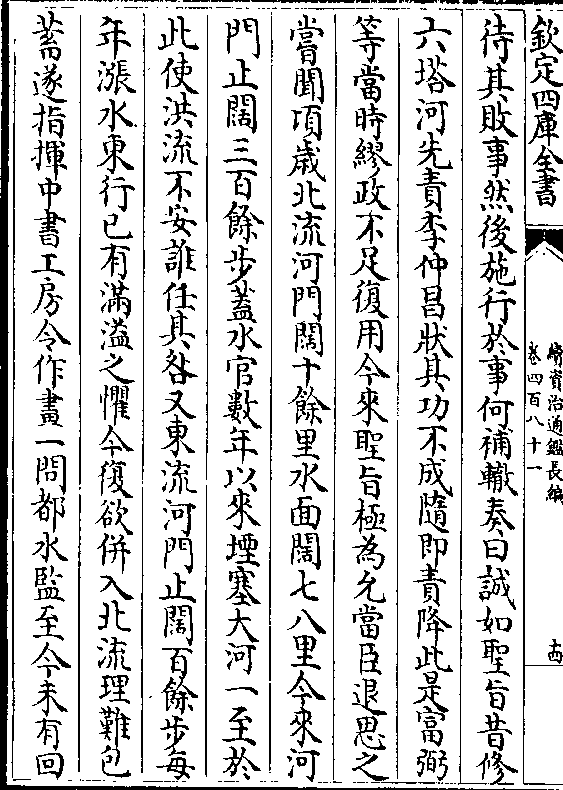 欽定四庫全書
續資治通鑑長編
卷四百八十一
十四
待其敗事然後施行於事何補轍奏曰誠如聖旨昔修
六塔河先責李仲昌狀其功不成隨即責降此是富弼
等當時繆政不足復用今來聖旨極為允當臣退思之
嘗聞項歲北流河門闊十餘里水面闊七八里今來河
門止闊三百餘步蓋水官數年以來堙塞大河一至於
此使洪流不安誰任其咎又東流河門止闊百餘步每
年漲水東行已有滿溢之懼今復欲併入北流理難包
蓄遂指揮中書工房令作畫一問都水監至今未有回